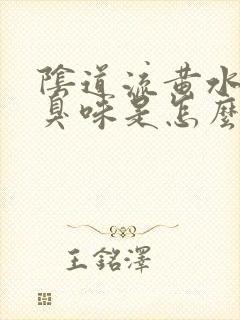 陰道流黃水
臭味是怎麼
王銘澤